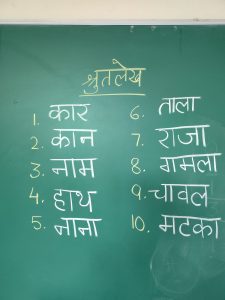 श्रुतलेख
1. कार
2. कान
3. नाम
4. हाथ
5. नाना
6. ताला
7. राजा
8. गमला
9. चावल
10. मटका